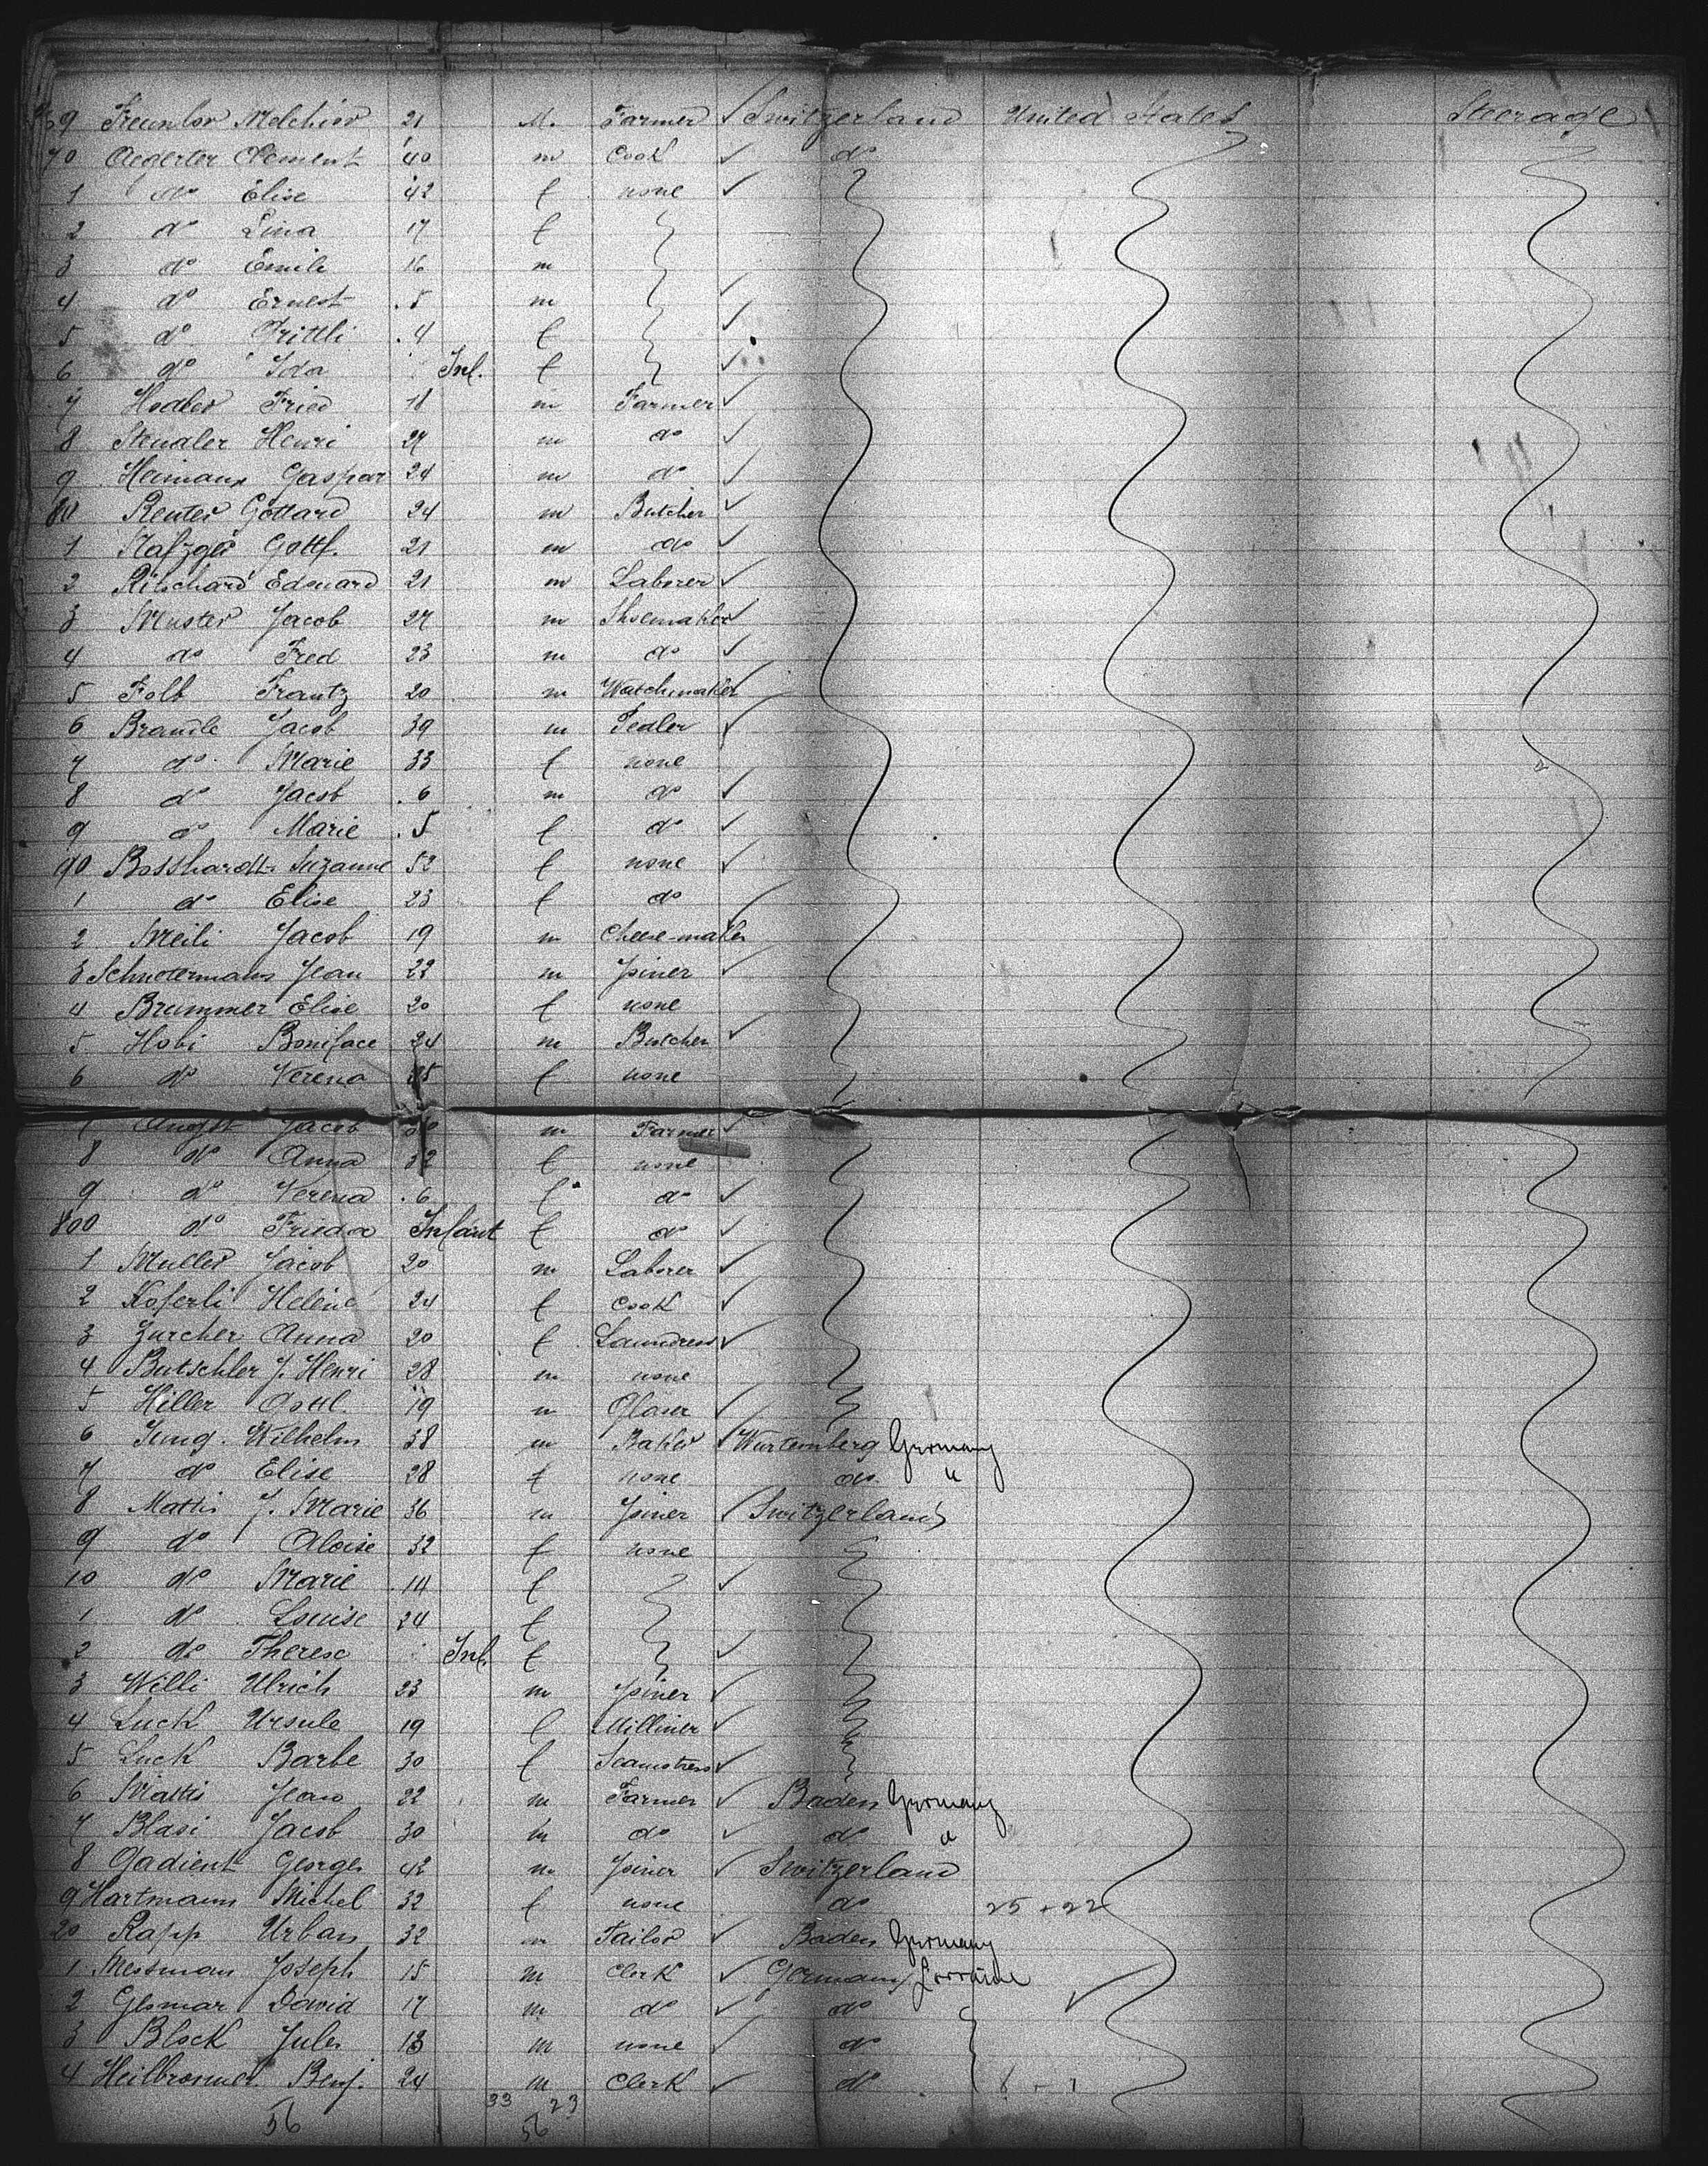 69 Freunler Melchior 21 M. Farmer ✓ Switzerland United States Steerage
70 Aegerter Clement 40 m Cook ✓ do
1 do Elise 42 f none ✓
2 do Lina 17 f
3 do Emile 16 m
4 do Ernest 5 m ✓
5 do Frittli 4 f ✓
6 do Ida Inf. f ✓
7 Hodler Fried 18 m Farmer ✓
8 Steudler Henri 27 m do ✓
9 Heimann Gaspar 24 m do ✓
80 Reuter Gottard 24 m Butcher ✓
1 Nafzger Gottf. 21 m do ✓
2 Ritschard Edouard 21 m Laborer ✓
3 Muster Jacob 27 m Shoemaker ✓
4 do Fred 23 m do ✓
5 Folb Frantz 20 m Watchmaker ✓
6 Brandle Jacob 39 m Pedler ✓
7 do Marie 33 f none
8 do Jacob 6 m do ✓
9 do Marie 5 f do ✓
90 Bosshardt Suzanne 52 f none ✓
1 do Elise 23 f do
2 Meili Jacob 19 m Cheese-maker ✓
3 Jean 22 m Joiner ✓
4 Brummer Elise 20 f none
5 Hobi Boniface 24 m Butcher ✓
6 do Verena 25 f none
7 Angst Jacob m Farmer ✓
8 do Anna 32 f none
9 do Verena 6 f do ✓
800 do Frieda Infant f do ✓
1 Muller Jacob 20 m Laborer ✓
2 Koferli Helene 24 f Cook ✓
3 Zurcher Anna 20 f Laundress ✓
4 Butschler J. Henri 28 m none
5 Hiller Gottl. 19 m Glaser ✓
6 Jung Wilhelm 38 m Baker ✓ Wurtemberg Germany
7 do Elise 28 f none do "
8 Mattis J. Marie 36 m Joiner ✓ Switzerland
9 do Aloise 32 f none
10 do Marie 14 f ✓
1 do Louise 24 f
2 do Therese Inf. f ✓
3 Willi Ulrich 23 m Joiner ✓
4 Luck Ursule 19 f Milliner ✓
5 Luck Barbe 30 f Seamstress ✓
6 Mattis Jean 22 m Farmer ✓ Baden Germany
7 Blasi Jacob 30 m do ✓ do "
8 Gadient Georges 42 m Joiner ✓ Switzerland
9 Hartmann Michel 32 f none do 25 + 22
20 Rapp Urban 32 m Tailor ✓ Baden Germany
1 Messman Joseph 15 m Clerk ✓ Germany Lorraine
2 Gesmar David 17 m do ✓ do ✓
3 Block Jules 13 m none ✓ do
4 Heilbronner Benj. 24 m Clerk ✓ do
33 23
56 56